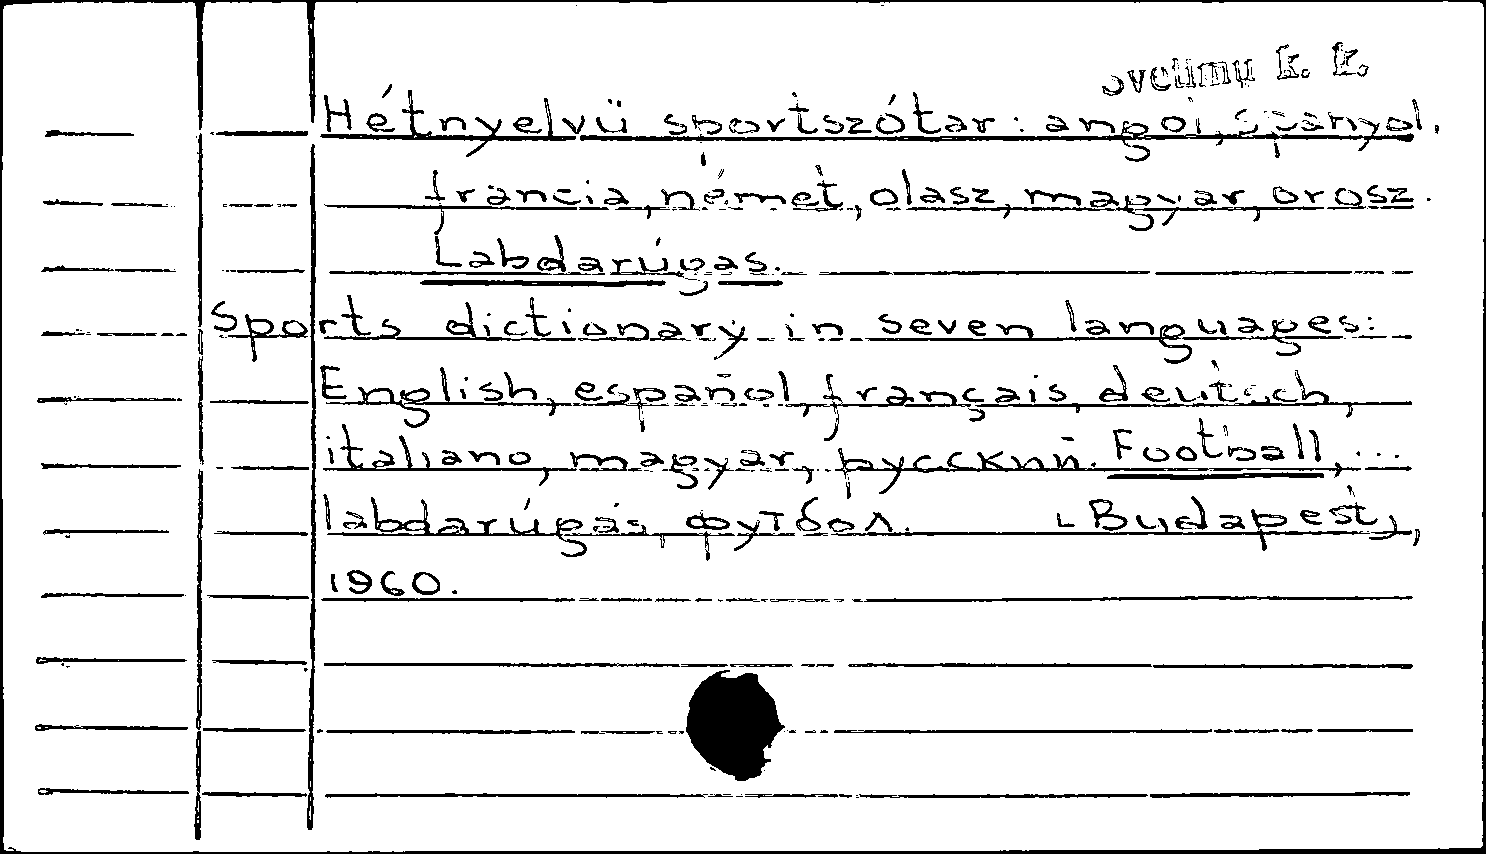 svetimų k. k.
Hétnyelvü sportszótar: angol, spanyol,
francia, német, olasz, magyar, orosz.
Labdarúgas.
Sports dictionary in seven languages:
English, español, français, deutsch,
italiano, magyar, русский. Football, ...
labdarúgás, футбол. [Budapest],
1960.